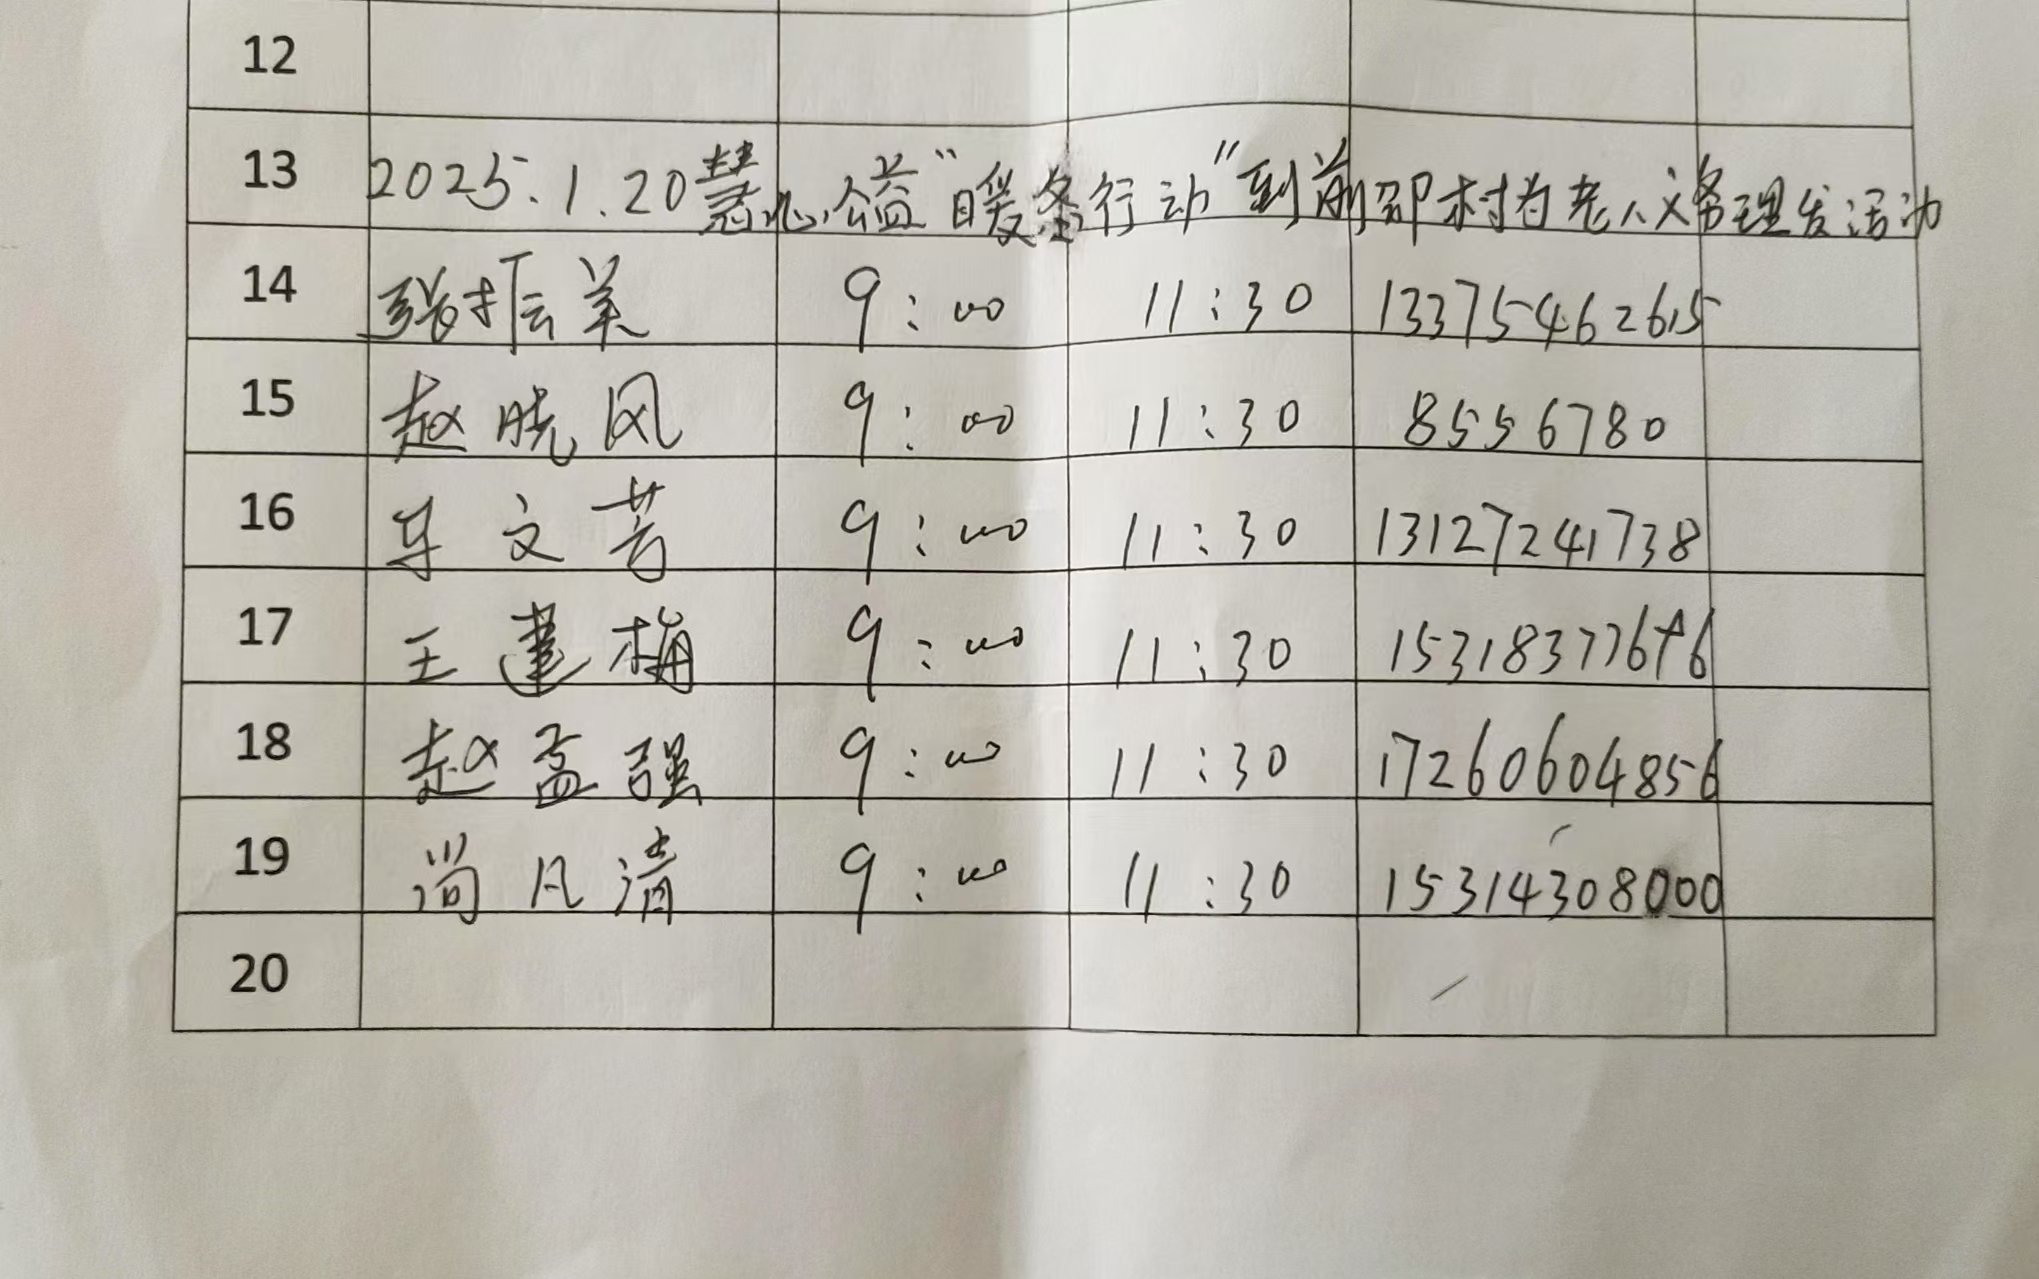 12
13 2025.1.20慧心公益“暖冬行动”到前邵村为老人义务理发活动
14 张振美 9:00 11:30 13375462615
15 赵晓风 9:00 11:30 8556780
16 文芳 9:00 11:30 13127241738
17 王建梅 9:00 11:30
18 赵孟强 9:00 11:30 17260604856
19 尚凡清 9:00 11:30 15314308000
20